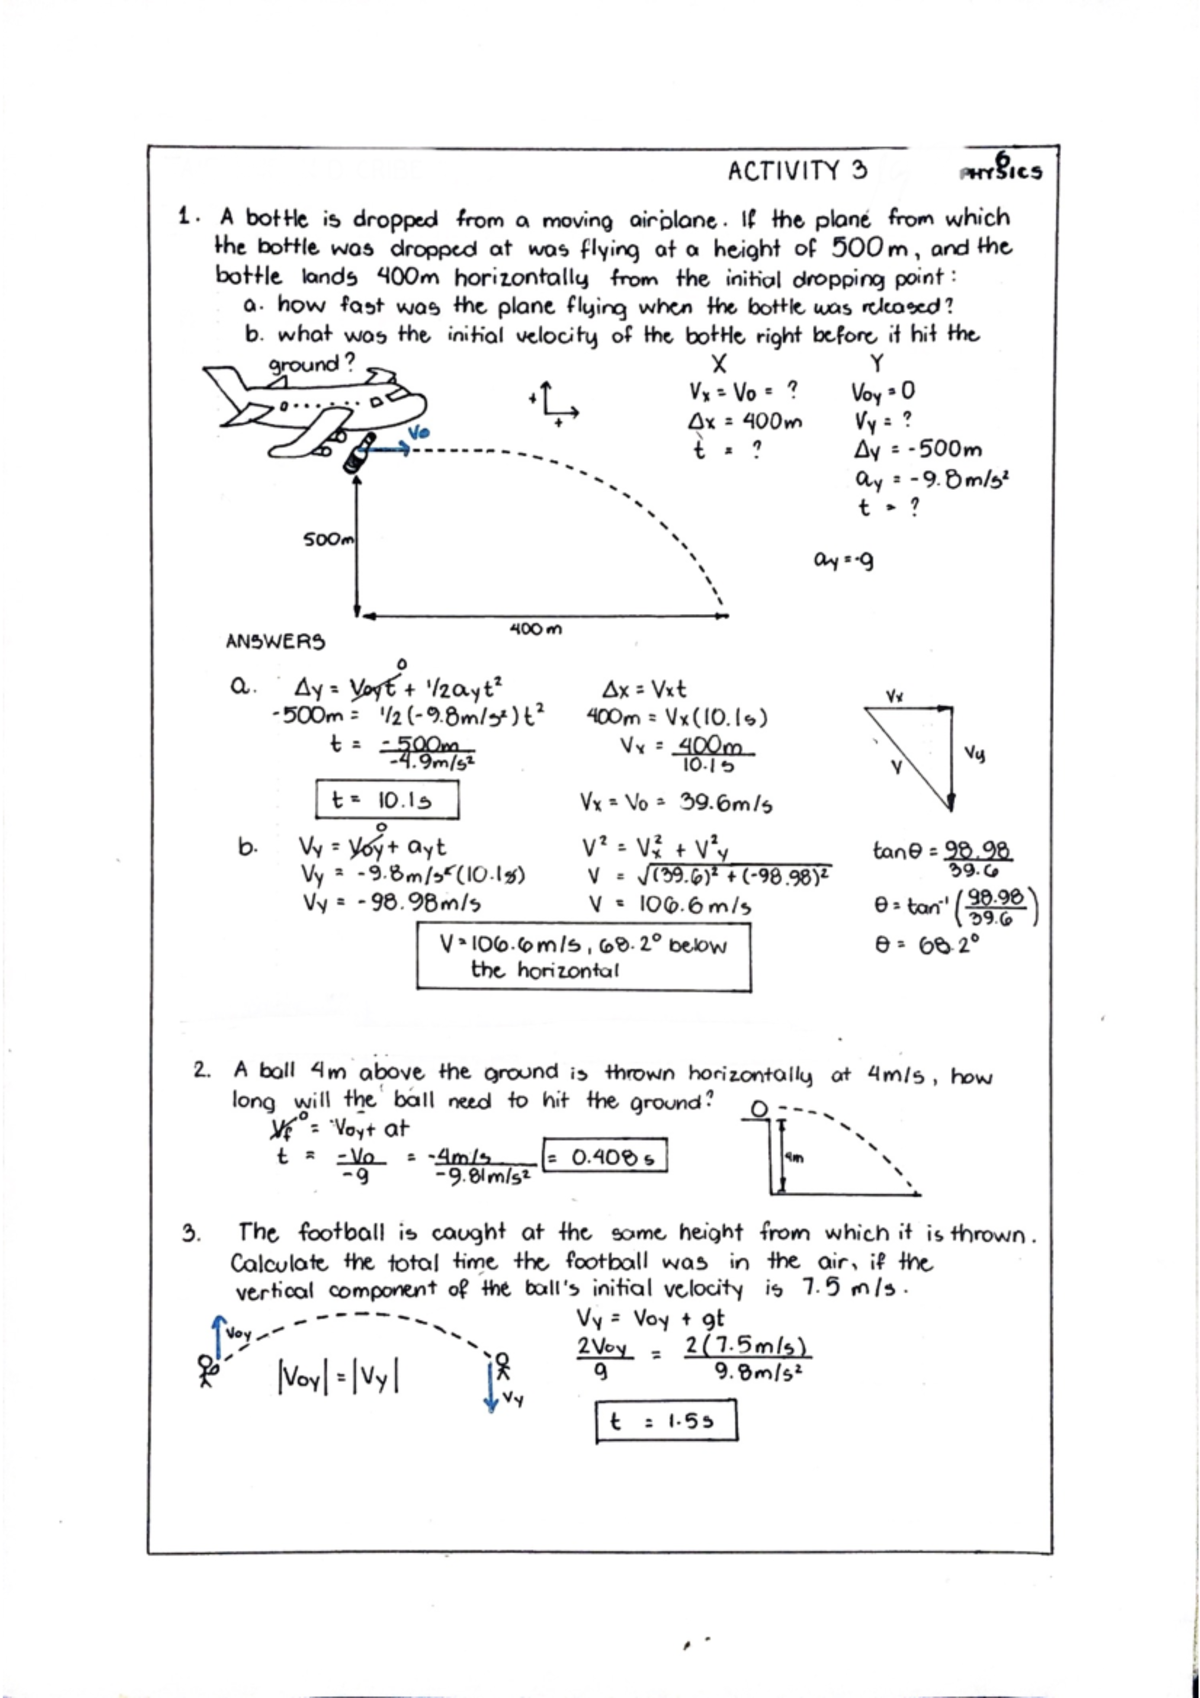 ACTIVITY 3
6
PHYSICS
1. A bottle is dropped from a moving airplane. If the plane from which
the bottle was dropped at was flying at a height of 500m, and the
bottle lands 400m horizontally from the initial dropping point:
a. how fast was the plane flying when the bottle was released?
b. what was the initial velocity of the bottle right before it hit the
ground?
X Y
Vx = Vo = ? Voy = 0
Δx = 400m Vy = ?
t = ? Δy = -500m
ay = -9.8m/s²
t = ?
+
+
Vo
ay = -g
500m
400m
ANSWERS
a. Δy = Voyt + 1/2ayt² Δx = Vxt
0
-500m = 1/2(-9.8m/s²)t² 400m = Vx(10.1s)
t = -500m / -4.9m/s² Vx = 400m / 10.1s
t = 10.1s Vx = Vo = 39.6m/s
Vx
Vy
V
b. Vy = Voy + ayt V² = Vx² + V²y tanθ = 98.98 / 39.6
0
Vy = -9.8m/s²(10.1s) V = √(39.6)² + (-98.98)² θ = tan⁻¹(98.98 / 39.6)
Vy = -98.98m/s V = 106.6m/s θ = 68.2°
V=106.6m/s, 68.2° below
the horizontal
2. A ball 4m above the ground is thrown horizontally at 4m/s, how
long will the ball need to hit the ground?
Vf⁰ = Voy+ at
t = -Vo / -g = -4m/s / -9.81m/s² = 0.408s
4m
3. The football is caught at the same height from which it is thrown.
Calculate the total time the football was in the air, if the
vertical component of the ball's initial velocity is 7.5 m/s.
Voy
|Voy| = |Vy|
Vy
Vy = Voy + gt
2Voy / g = 2(7.5m/s) / 9.8m/s²
t = 1.5s